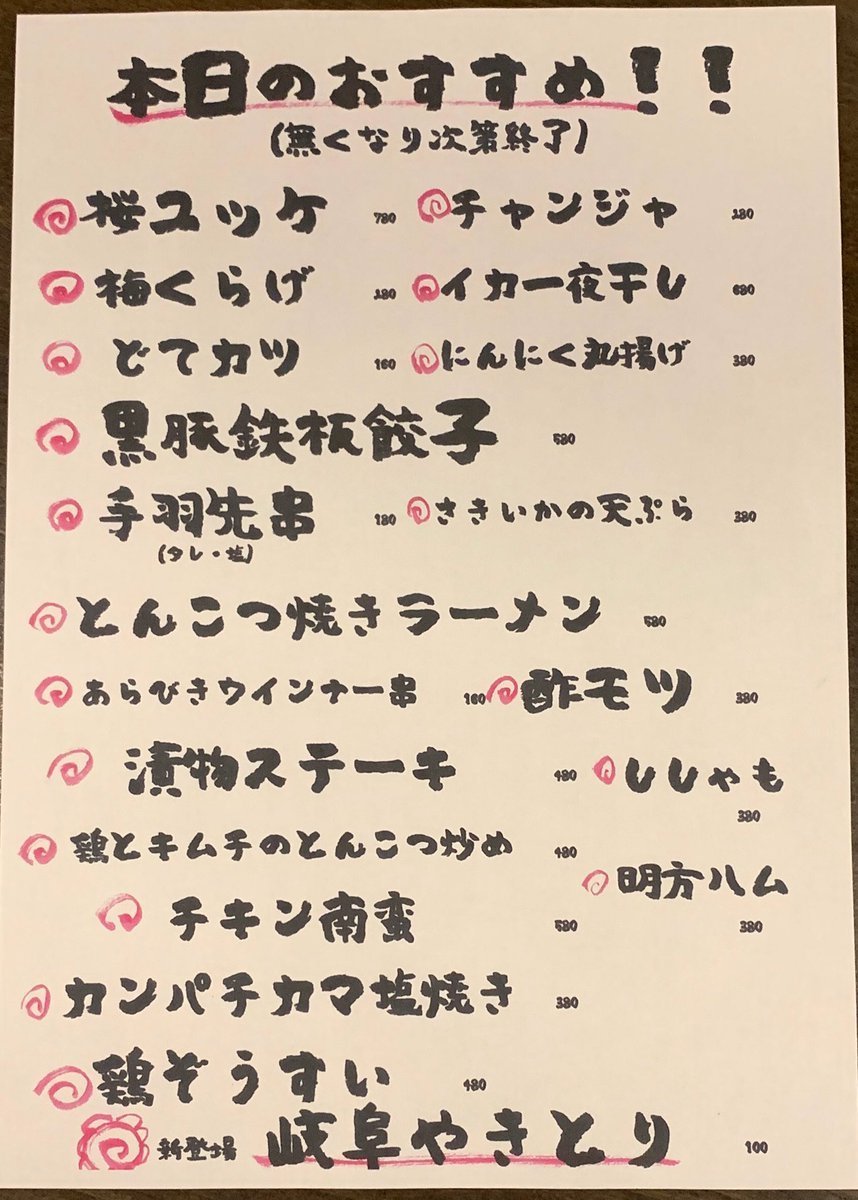 本日のおすすめ!!
(無くなり次第終了)
桜ユッケ 780 チャンジャ 180
梅くらげ 180 イカ一夜干し 680
どてカツ 160 にんにく丸揚げ 380
黒豚鉄板餃子 580
手羽先串 180 さきいかの天ぷら 380
(タレ・塩)
とんこつ焼きラーメン 580
あらびきウインナー串 160 酢モツ 380
漬物ステーキ 480 ししゃも
380
鶏とキムチのとんこつ炒め 480
明方ハム
チキン南蛮 580 380
カンパチカマ塩焼き 380
鶏ぞうすい 480
新登場 岐阜やきとり 100